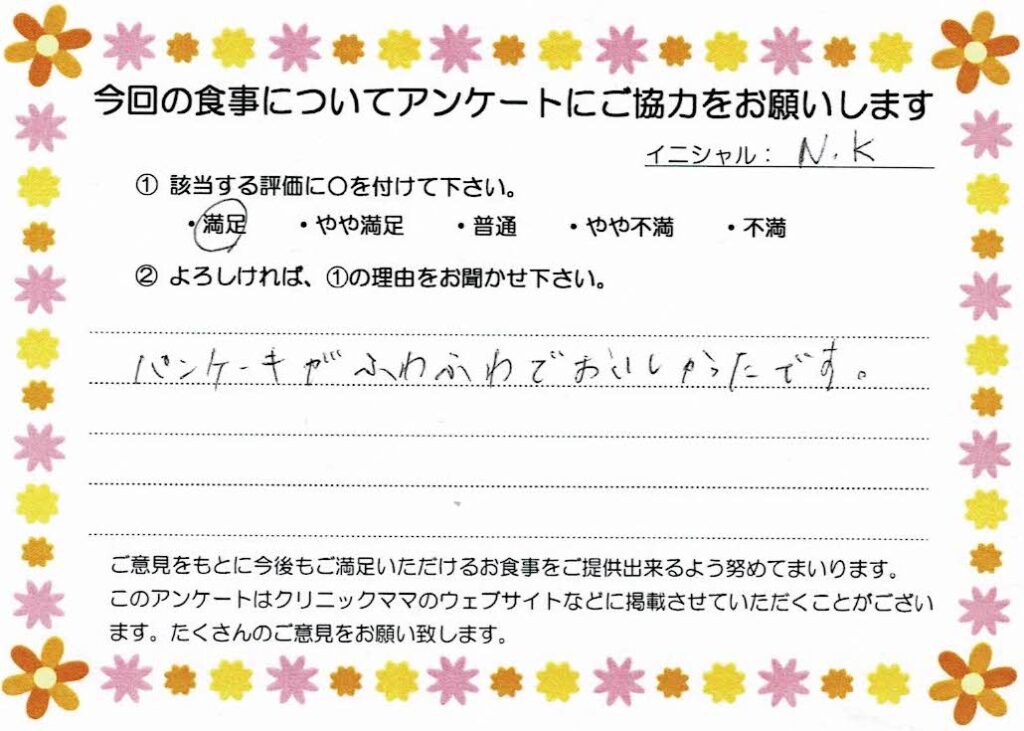 今回の食事についてアンケートにご協力をお願いします
イニシャル： N.K
① 該当する評価に〇を付けて下さい。
・満足 ・やや満足 ・普通 ・やや不満 ・不満
② よろしければ、①の理由をお聞かせ下さい。
パンケーキがふわふわでおいしかったです。
ご意見をもとに今後もご満足いただけるお食事をご提供出来るよう努めてまいります。
このアンケートはクリニックママのウェブサイトなどに掲載させていただくことがござい
ます。たくさんのご意見をお願い致します。